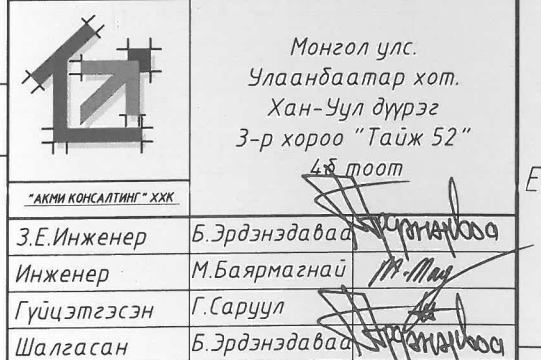 Монгол улс.
Улаанбаатар хот.
Хан-Уул дүүрэг
3-р хороо "Тайж 52"
4б тоот
"АКМИ КОНСАЛТИНГ" ХХК
З.Е.Инженер Б.Эрдэнэдаваа
Инженер М.Баярмагнай
Гүйцэтгэсэн Г.Саруул
Шалгасан Б.Эрдэнэдаваа
Е